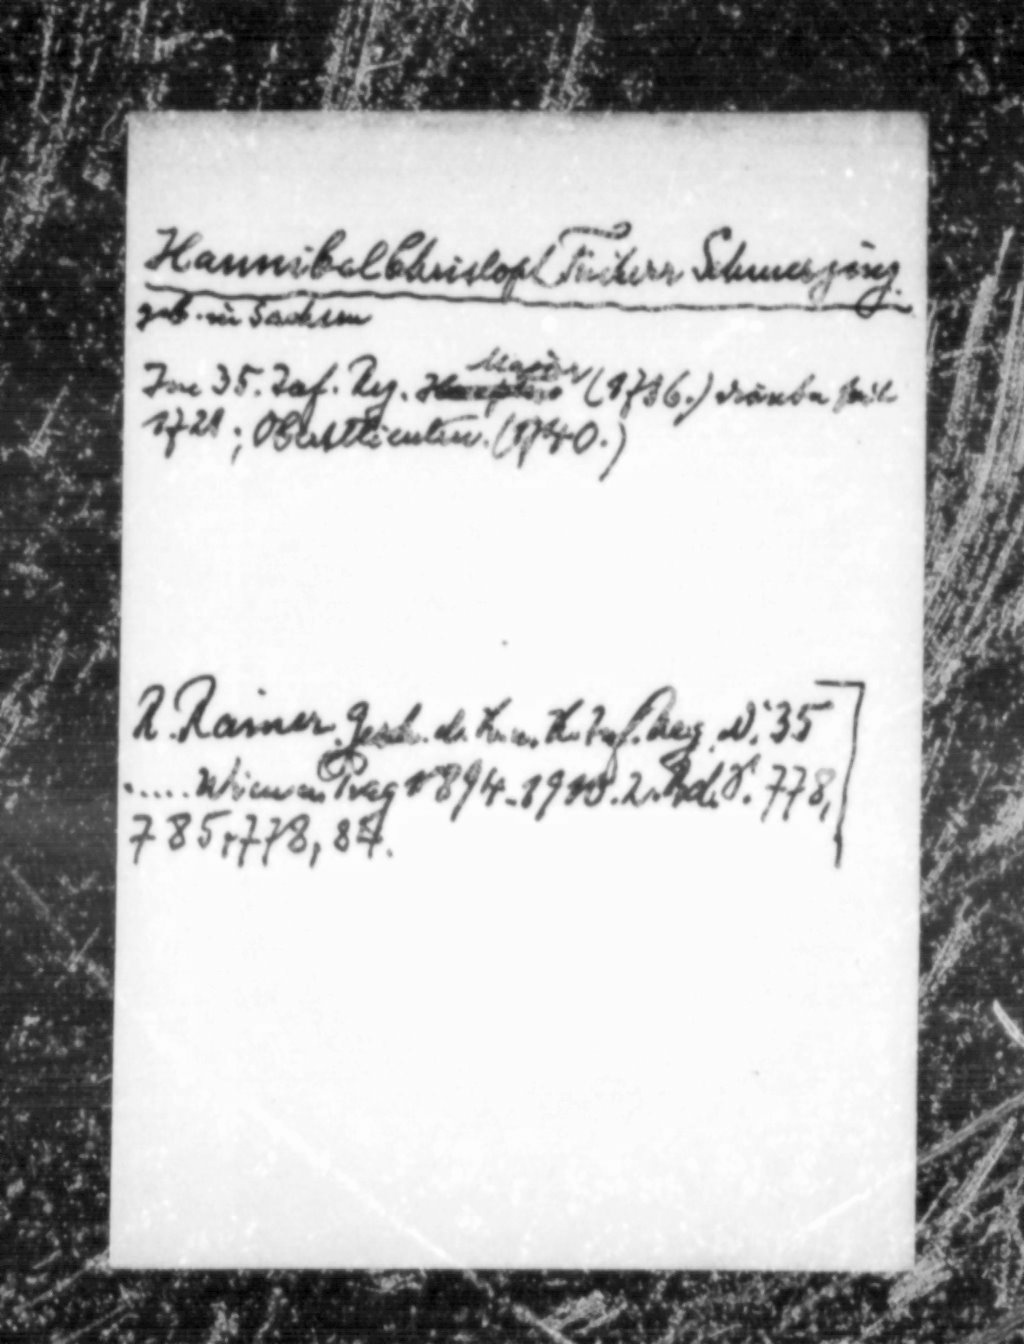 Hannibal Christoph Freiherr Schmerzing.
geb. in Sachsen
Im 35. Inf. Reg. Major (1736.) seit
1721; Oberstlieuten. (1740.)
R. Rainer. Gesch. d. k. u. k. Inf. Reg. N. 35
..... Wien u. Prag 1894-1910. 2. Bd. S. 778,
785, 778, 87.